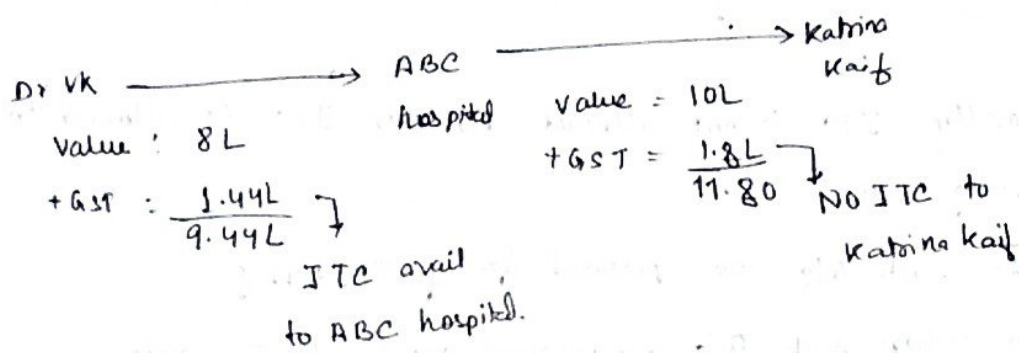 Dr VK → ABC hospital → Katrina Kaif
Value : 8L
+ GST : 1.44L
9.44L
ITC avail
to ABC hospital.
Value = 10L
+ GST = 1.8L
11.80
NO ITC to
Katrina Kaif